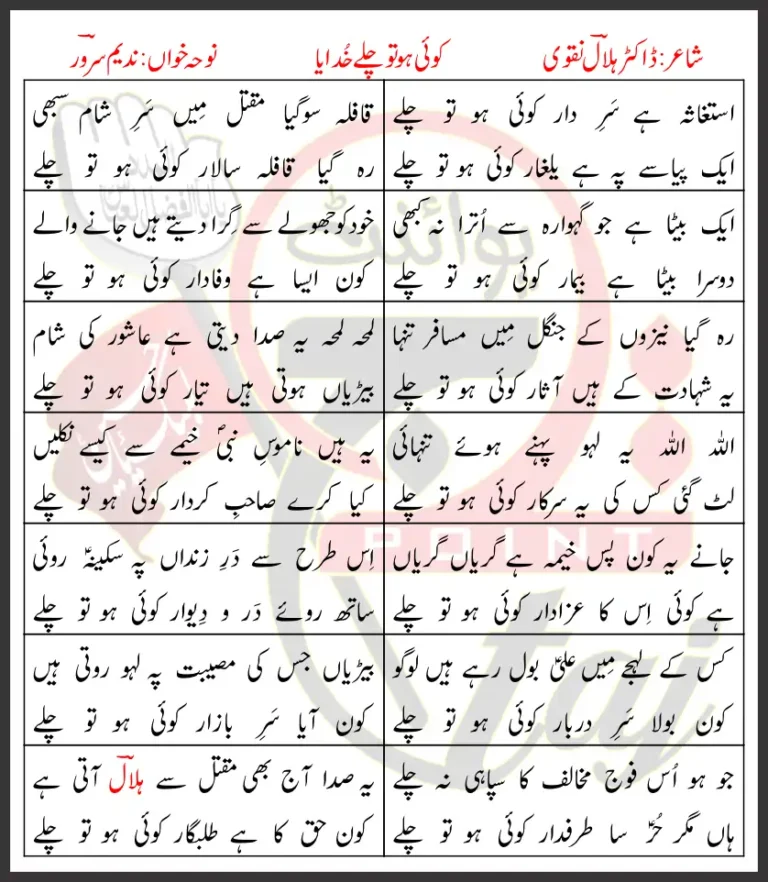 شاعر: ڈاکٹر ہلالؔ نقوی
کوئی ہو تو چلے خُدایا
نوحہ خواں: ندیم سرورؔ
استغاثہ ہے سَرِ دار کوئی ہو تو چلے
ایک پیاسے پہ ہے یلغار کوئی ہو تو چلے
قافلہ سوگیا مقتل مِیں سَرِ شام سبھی
رہ گیا قافلہ سالار کوئی ہو تو چلے
ایک بیٹا ہے جو گہوارہ سے اُترا نہ کبھی
دوسرا بیٹا ہے بیمار کوئی ہو تو چلے
خود کو جھولے سے گِرا دیتے ہیں جانے والے
کون ایسا ہے وفادار کوئی ہو تو چلے
رہ گیا نیزوں کے جنگل مِیں مسافر تنہا
یہ شہادت کے ہیں آثار کوئی ہو تو چلے
لمحہ لمحہ یہ صدا دیتی ہے عاشور کی شام
بیڑیاں ہوتی ہیں تیّار کوئی ہو تو چلے
اللہ اللہ یہ لہو پہنے ہوئے تنہائی
لٹ گئی کس کی یہ سرکار کوئی ہو تو چلے
یہ ہیں ناموسِ نبیؐ خیمے سے کیسے نکلیں
کیا کرے صاحبِ کردار کوئی ہو تو چلے
جانے یہ کون پس خیمہ ہے گریاں گریاں
ہے کوئی اِس کا عزادار کوئی ہو تو چلے
اِس طرح سے دَرِ زنداں پہ سکینہؑ روئی
ساتھ روئے دَر و دِیوار کوئی ہو تو چلے
کس کے لہجے مِیں علیؑ بول رہے ہیں لوگو
کون بولا سَرِ دربار کوئی ہو تو چلے
بیڑیاں جس کی مصیبت پہ لہو روتی ہیں
کون آیا سَرِ بازار کوئی ہو تو چلے
جو ہو اُس فوج مخالف کا سپاہی نہ چلے
ہاں مگر حُرؑ سا طرفدار کوئی ہو تو چلے
یہ صدا آج بھی مقتل سے ہلالؔ آتی ہے
کون حق کا ہے طلبگار کوئی ہو تو چلے
پوائنٹ
POINT
taj